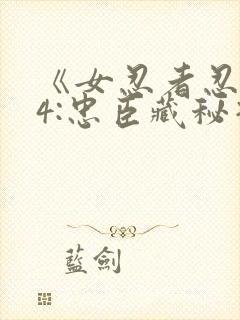 《女忍者忍
4:忠臣藏秘
藍劍